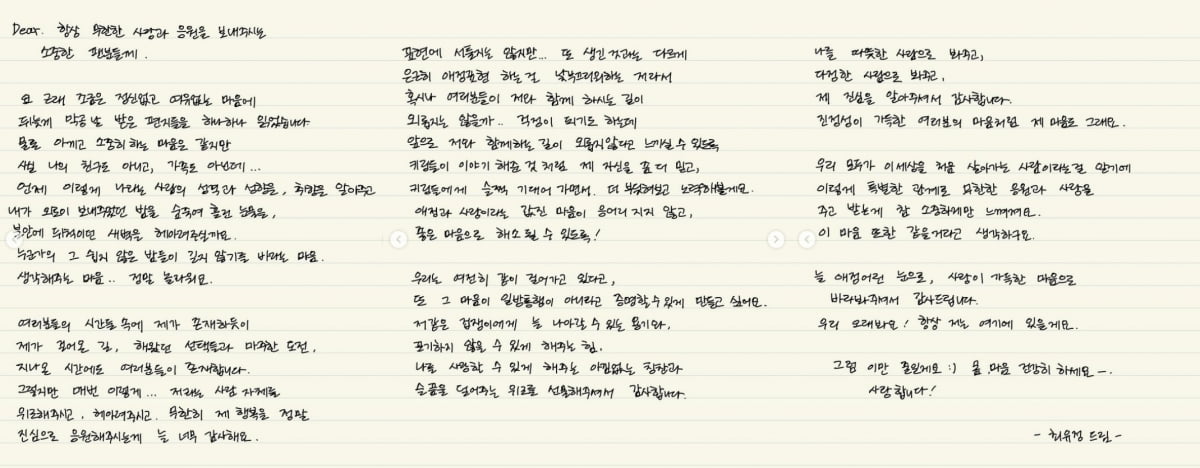 Dear. 항상 무한한 사랑과 응원을 보내주시는
소중한 팬분들께.
요 근래 조금은 정신없고 여유없는 마음에
뒤늦게 막공날 받은 편지들을 하나하나 읽었습니다
물론 아끼고 소중히 하는 마음은 같지만
사실 나의 친구도 아니고, 가족도 아닌데...
언제 이렇게 나라는 사람의 성격과 성향을, 취향을 알아주고
내가 외로이 보내주었던 밤을 숨죽여 흘린 눈물을,
불안에 뒤척이던 새벽을 헤아려주실까요.
누군가의 그 쉽지 않은 밤들이 길지 않기를 바라는 마음.
생각해주는 마음.. 정말 놀라워요.
여러분들의 시간들 속에 제가 존재하듯이
제가 걸어온 길, 해왔던 선택들과 마주한 도전,
지나온 시간에도 여러분들이 존재합니다.
그렇지만 매번 이렇게... 저라는 사람 자체를
위로해주시고, 헤아려주시고. 무한히 제 행복을 정말
진심으로 응원해주시는게 늘 너무 감사해요.
표현에 서툴지는 않지만... 또 생긴것과는 다르게
은근히 애정표현 하는걸 낯부끄러워하는 저라서
혹시나 여러분들이 저와 함께 하시는 길이
외롭지는 않을까.. 걱정이 되기도 하는데
앞으로 저와 함께하는 길이 외롭지않다고 느끼실 수 있도록
키링들이 이야기 해준 것 처럼 제 자신을 좀 더 믿고,
키링들에게 슬쩍 기대어 가면서. 더 부딪혀보고 노력해볼게요.
애정과 사랑이라는 값진 마음이 응어리 지지 않고,
좋은 마음으로 해소 될 수 있도록!
우리는 여전히 같이 걸어가고 있다고,
또 그 마음이 일방통행이 아니라고 증명할 수 있게 만들고 싶어요.
저같은 겁쟁이에게 늘 나아갈 수 있는 용기와,
포기하지 않을 수 있게 해주는 힘.
나를 사랑할 수 있게 해주는 아낌없는 칭찬과
슬픔을 덜어주는 위로를 선물해주셔서 감사합니다.
나를 따뜻한 사람으로 봐주고,
다정한 사람으로 봐주고,
제 진심을 알아주셔서 감사합니다.
진정성이 가득한 여러분의 마음처럼 제 마음도 그래요.
우리 모두가 이 세상을 처음 살아가는 사람이라는걸 알기에
이렇게 특별한 관계로 무한한 응원과 사랑을
주고 받는게 참 소중하게만 느껴져요.
이 마음 또한 같을거라고 생각하구요.
늘 애정어린 눈으로, 사랑이 가득한 마음으로
바라봐주셔서 감사드립니다.
우리 오래봐요! 항상 저는 여기에 있을게요.
그럼 이만 줄일게요 :) 몸, 마음 건강히 하세요-.
사랑합니다!
- 최유정 드림 -